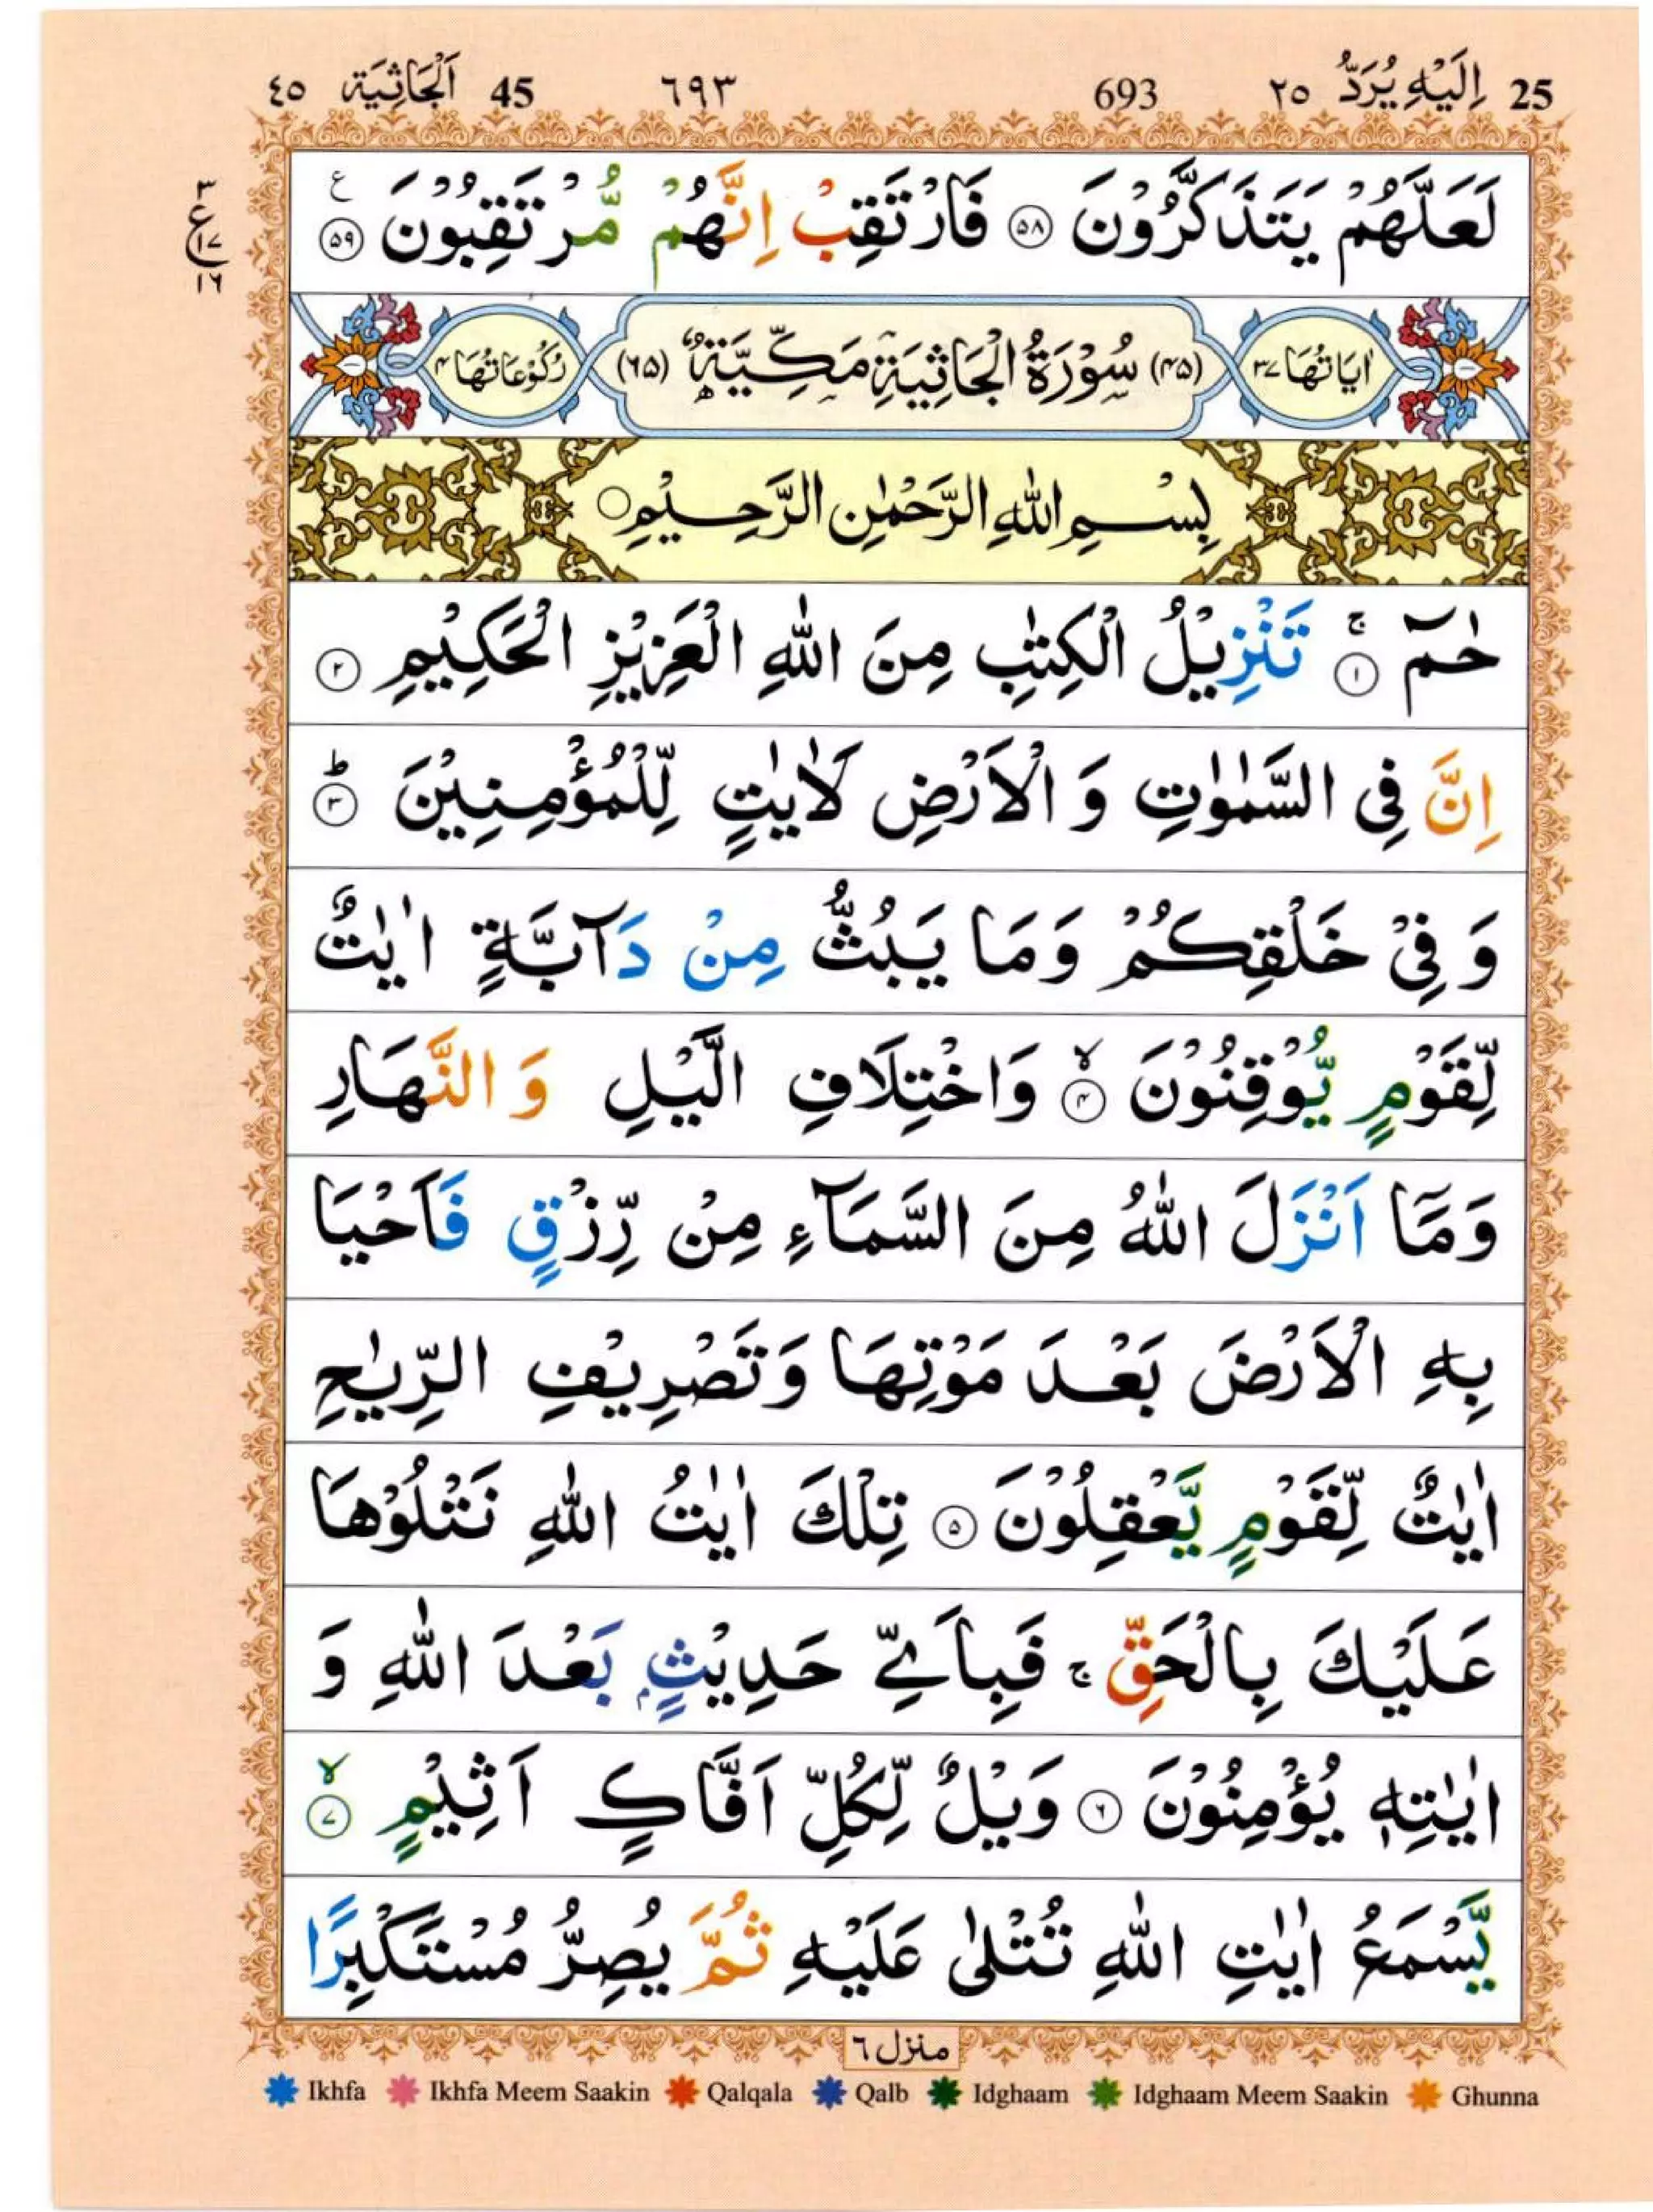 25 اِلَيْهِ يُرَدُّ ٢٥ 693 ٦٩٣ 45 اَلْجَاثِيَة ٤٥
لَعَلَّهُمْ يَتَذَكَّرُوْنَ ۝٥٨ فَارْتَقِبْ اِنَّهُمْ مُّرْتَقِبُوْنَ ۝٥٩ ع
٣
ع
١٧
١٦
اٰيَاتُهَا ٣٧ (٤٥) سُوْرَةُ الْجَاثِيَةِ مَكِّيَّةٌ (٦٥) رُكُوْعَاتُهَا ٤
بِسْمِ اللّٰهِ الرَّحْمٰنِ الرَّحِيْمِ
حٰمٓ ۝١ۚ تَنْزِيْلُ الْكِتٰبِ مِنَ اللّٰهِ الْعَزِيْزِ الْحَكِيْمِ ۝٢
اِنَّ فِى السَّمٰوٰتِ وَ الْاَرْضِ لَاٰيٰتٍ لِّلْمُؤْمِنِيْنَ ۝٣ؕ
وَ فِىْ خَلْقِكُمْ وَمَا يَبُثُّ مِنْ دَآبَّةٍ اٰيٰتٌ
لِّقَوْمٍ يُّوْقِنُوْنَ ۝٤ۙ وَاخْتِلَافِ الَّيْلِ وَ النَّهَارِ
وَمَاۤ اَنْزَلَ اللّٰهُ مِنَ السَّمَآءِ مِنْ رِّزْقٍ فَاَحْيَا
بِهِ الْاَرْضَ بَعْدَ مَوْتِهَا وَتَصْرِيْفِ الرِّيٰحِ
اٰيٰتٌ لِّقَوْمٍ يَّعْقِلُوْنَ ۝٥ تِلْكَ اٰيٰتُ اللّٰهِ نَتْلُوْهَا
عَلَيْكَ بِالْحَقِّ ۚ فَبِاَىِّ حَدِيْثٍۭ بَعْدَ اللّٰهِ وَ
اٰيٰتِهٖ يُؤْمِنُوْنَ ۝٦ وَيْلٌ لِّكُلِّ اَفَّاكٍ اَثِيْمٍ ۝٧ۙ
يَّسْمَعُ اٰيٰتِ اللّٰهِ تُتْلٰى عَلَيْهِ ثُمَّ يُصِرُّ مُسْتَكْبِرًا
منزل ٦
Ikhfa Ikhfa Meem Saakin Qalqala Qalb Idghaam Idghaam Meem Saakin Ghunna